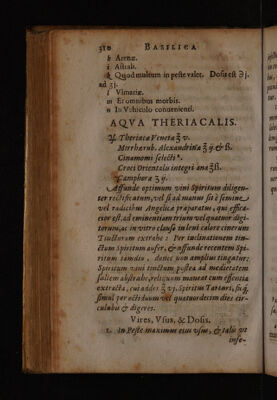 310 BASILICA
h Arenæ.
i Astrali.
k Quod multum in peste valet. Dosis est ℈j.
ad ʒj.
l Vimariæ.
m Et omnibus morbis.
n In Vehiculo convenienti.
AQVA THERIACALIS.
♃ Theriacæ Venetæ ℥ v.
Myrrhærub. Alexandrinæ ℥ ij. & ß.
Cinamomi selecti
Croci Orientalis integri ana ℥ß.
Camphoræ ʒ ij.
Affunde optimum vini Spiritum diligen-
ter rectificatum, vel si ad manus sit è semine
vel radicibus Angelicæ præparatus, qui effica-
cior est, ad eminentiam trium vel quatuor digi-
torum, ac in vitro clauso in leni calore cinerum
Tincturam extrahe: Per inclinationem tin-
ctum Spiritum aufer, & affunde recentem Spi-
ritum tamdiu, donec non amplius tingatur:
Spiritum vini tinctum postea ad medietatem
saltem abstrahe, reliquum manent cum essentia
extracta, cui addes ℥ vj. Spiritus Tartari, sicq́;
simul per octiduum vel quatuordecim dies cir-
culabis & digeres.
Vires, Vsus, & Dosis.
1. In Peste maximus eius usus, & talis ut
infe-